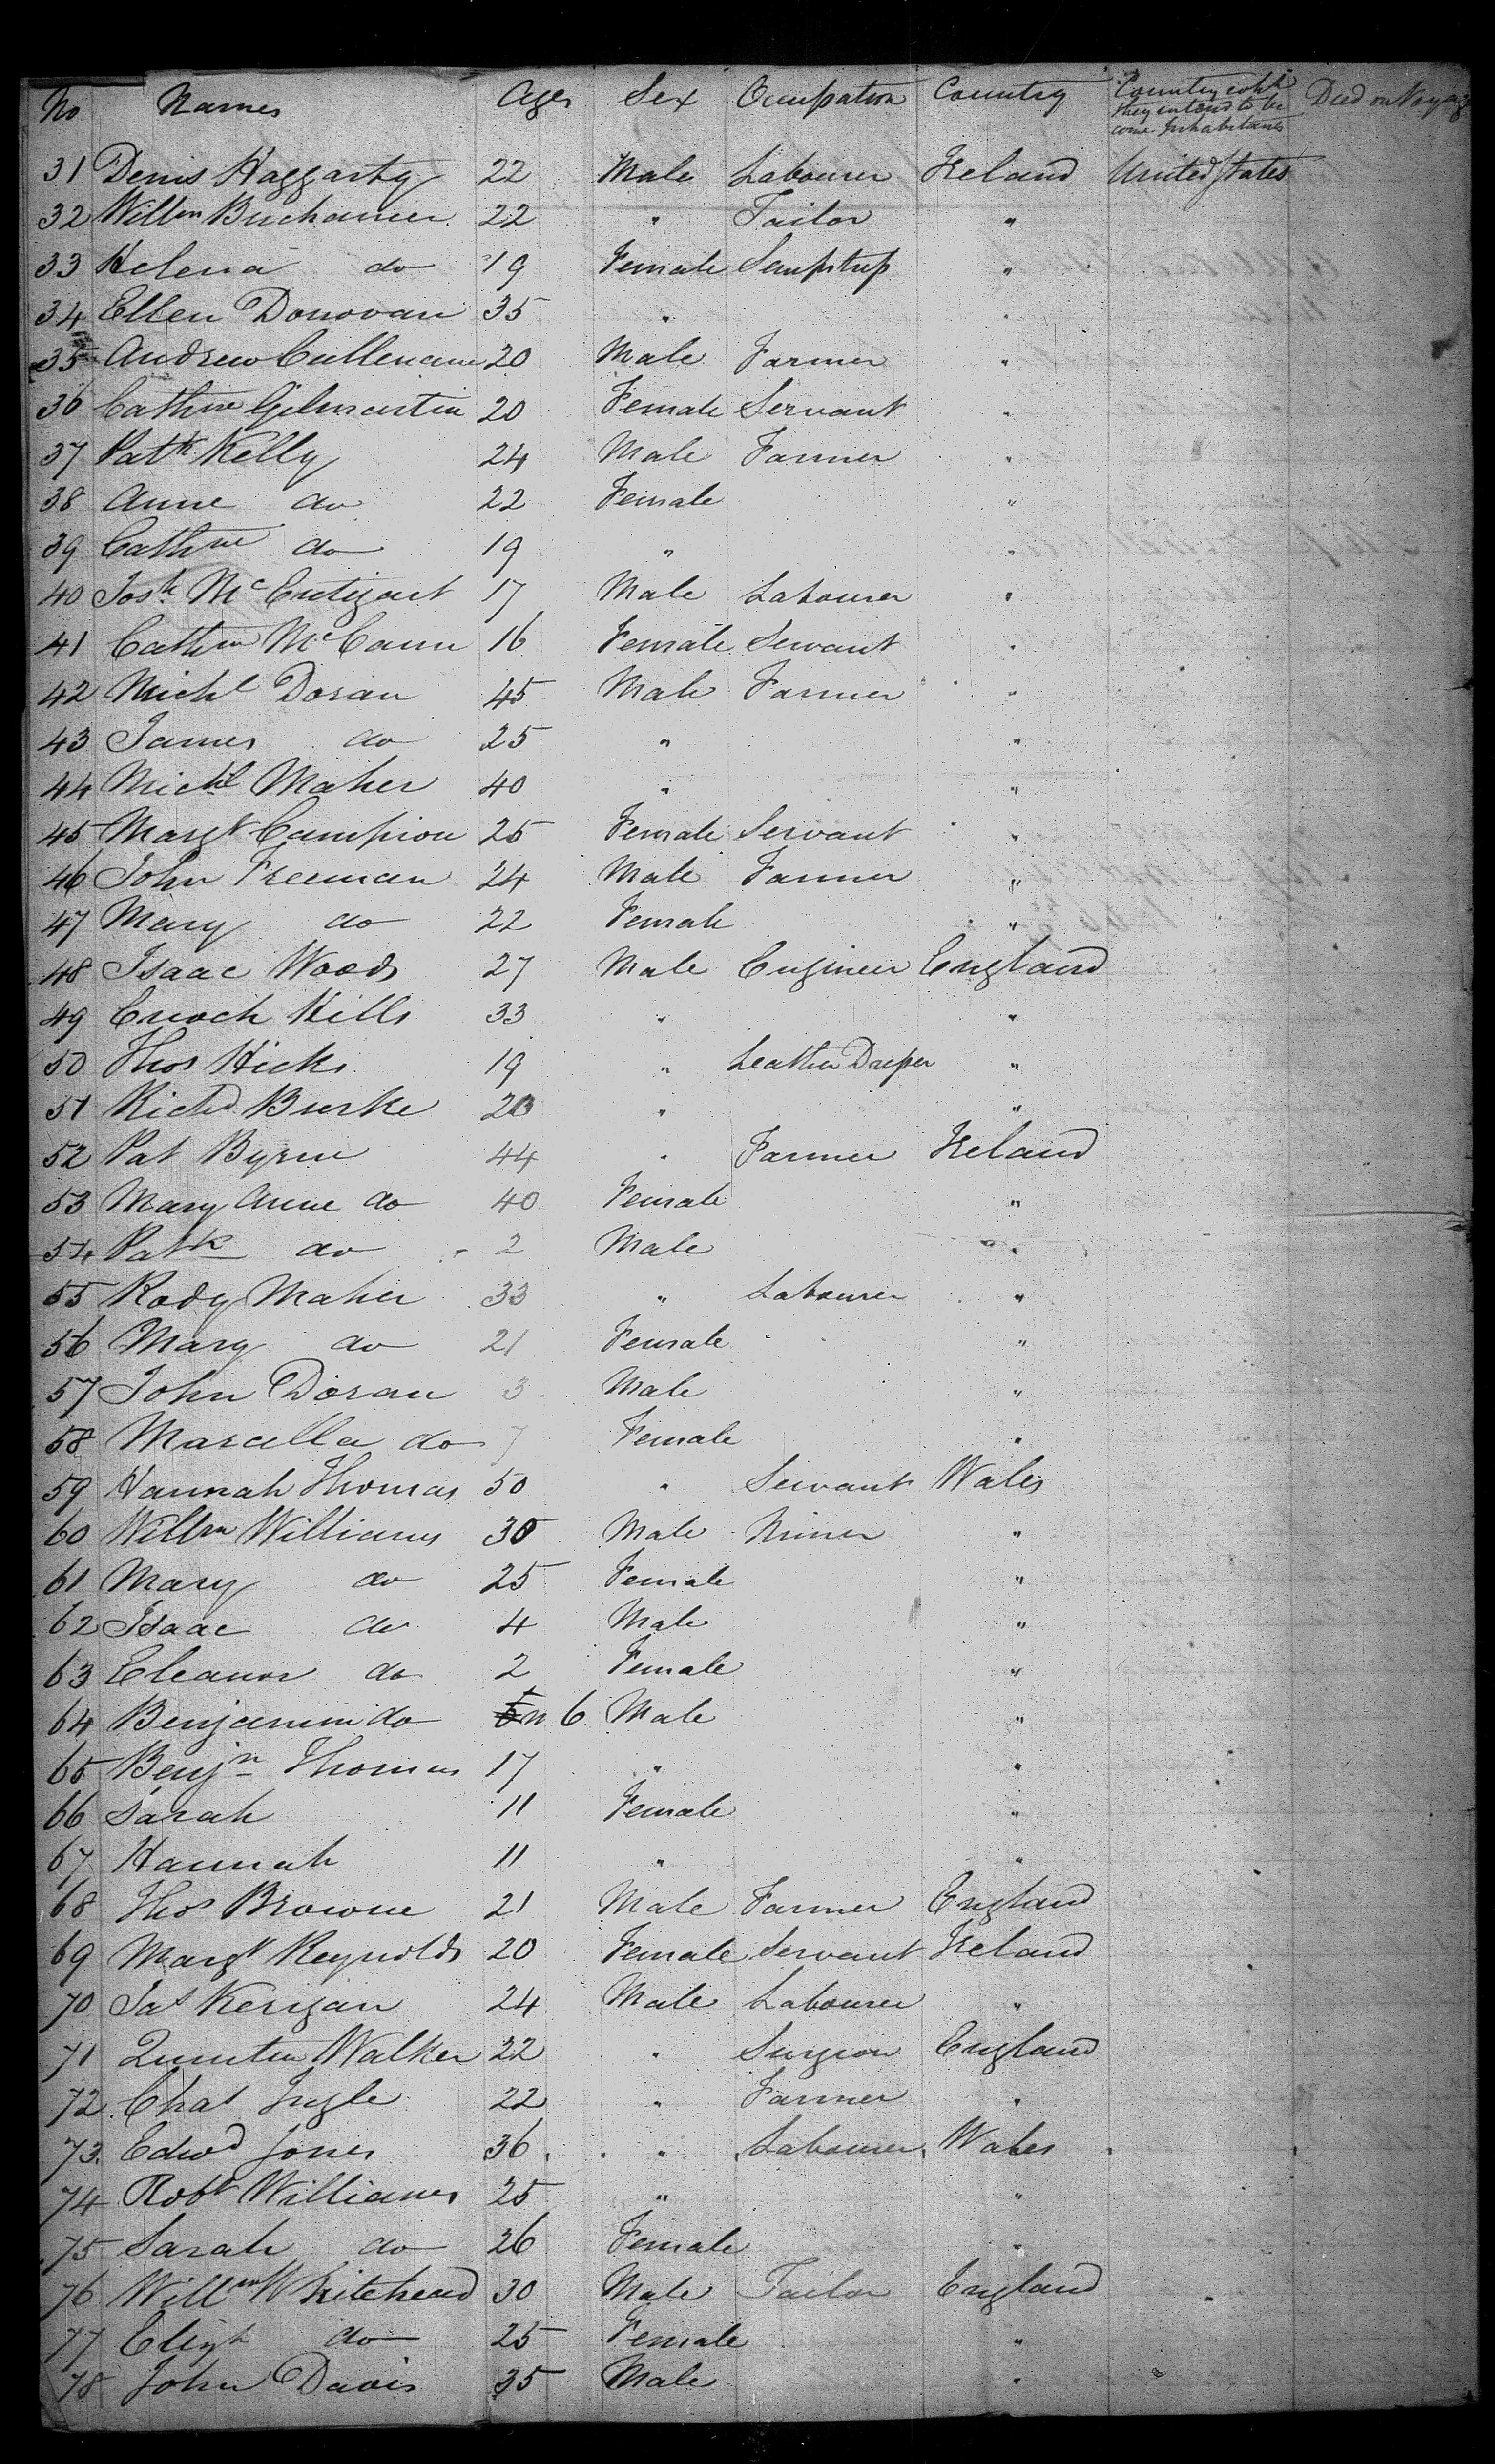 No Names Ages Sex Occupation Country Country which they intend to become Inhabitants Died on Voyage
31 Denis Haggarty 22 Male Labourer Ireland United States
32 Willm Buchanan 22 " Tailor "
33 Helena do 19 Female Sempstress "
34 Ellen Donovan 35 " "
35 Andrew Cullenane 20 Male Farmer "
36 Cathne Gilmartin 20 Female Servant "
37 Patk Kelly 24 Male Farmer "
38 Anne do 22 Female "
39 Cathne do 19 " "
40 Josh 17 Male Labourer "
41 Cathne McCann 16 Female Servant "
42 Michl Doran 45 Male Farmer "
43 James do 25 " "
44 Michl Maher 40 " "
45 Margt Campion 25 Female Servant "
46 John Freeman 24 Male Farmer "
47 Mary do 22 Female "
48 Isaac Woods 27 Male Engineer England
49 Enoch Hills 33 " "
50 Thos Hicks 19 " Leather Dresser "
51 Richd Burke 20 " "
52 Pat Byrne 44 " Farmer Ireland
53 Mary Anne do 40 Female "
54 Patk do 2 Male "
55 Rody Maher 33 " Labourer "
56 Mary do 21 Female "
57 John Doran 3 Male "
58 Marcella do 7 Female "
59 Hannah Thomas 50 " Servant Wales
60 Willm Williams 30 Male Miner "
61 Mary do 25 Female "
62 Isaac do 4 Male "
63 Eleanor do 2 Female "
64 Benjamin do m 6 Male "
65 Benjn Thomas 17 " "
66 Sarah 11 Female "
67 Hannah 11 " "
68 Thos Browne 21 Male Farmer England
69 Margt Reynolds 20 Female Servant Ireland
70 Jas Kerigan 24 Male Labourer "
71 Quintin Walker 22 " Surgeon England
72 Chas Ingle 22 " Farmer "
73 Edwd Jones 36 " Labourer Wales
74 Robt Williams 25 " "
75 Sarah do 26 Female "
76 Willm Whitehead 30 Male Tailor England
77 Elizh do 25 Female "
78 John Davis 35 Male "